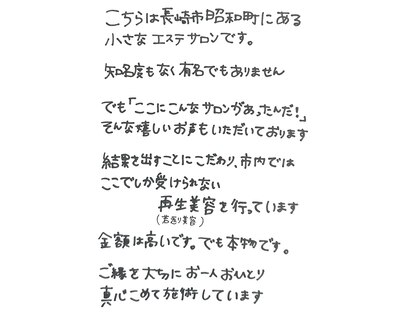 こちらは長崎市昭和町にある
小さなエステサロンです。
知名度もなく有名でもありません
でも「ここにこんなサロンがあったんだ！」
そんな嬉しいお声もいただいております
結果を出すことにこだわり、市内では
ここでしか受けられない
再生美容を行っています
(若返り美容)
金額は高いです。でも本物です。
ご縁を大切にお一人おひとり
真心こめて施術しています